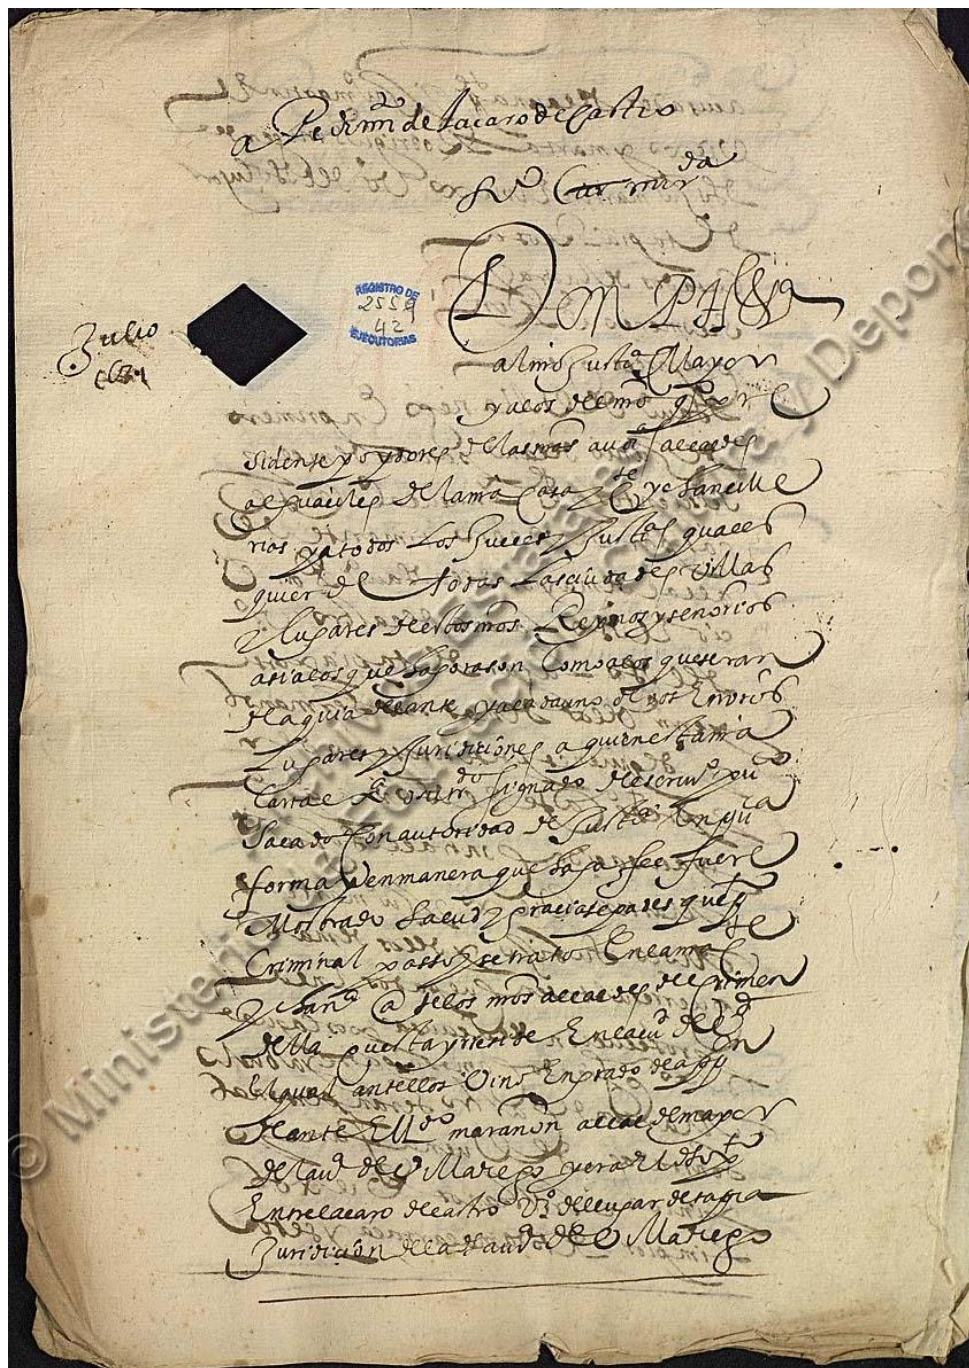 a Pedimi° de lacaro de Castro
Sº Carmirda
REGISTRO DE
2559
42
EJECUTORIAS
Julio
1631
Don Ph
al mi Justª Mayor
y a los del mº
sidente y oydores de las mas audª alcaldes
alguaciles de la mi casa y Cte y chancille
rias y a todos los Jueces y Justªs quales
quier de todas las ciudades villas
y lugares de estos mos Reynos y señorios
asi a los que haora son como a los que seran
de aqui adelante y a cada uno de vos
lugares y Jurisdiciones a quien esta mia
carta signado de scrivº puco
sacado con autoridad de Justª en puca
forma y en manera que haga fee fuere
mostrado salud y gracia sepades que
criminal passo y se trato en la mia Cte
y chanª ante los mos alcaldes del Crimen
della questa y reside en la ciud de
el qual ante ellos vino en grado de appon
de ante el Ldo marañon alcalde mayor
de la ciud de y era el dho
entre lacaro de castro vº del lugar de tapia
Juridicion de la dha ciud de
© Ministerio de Educación, y Deporte